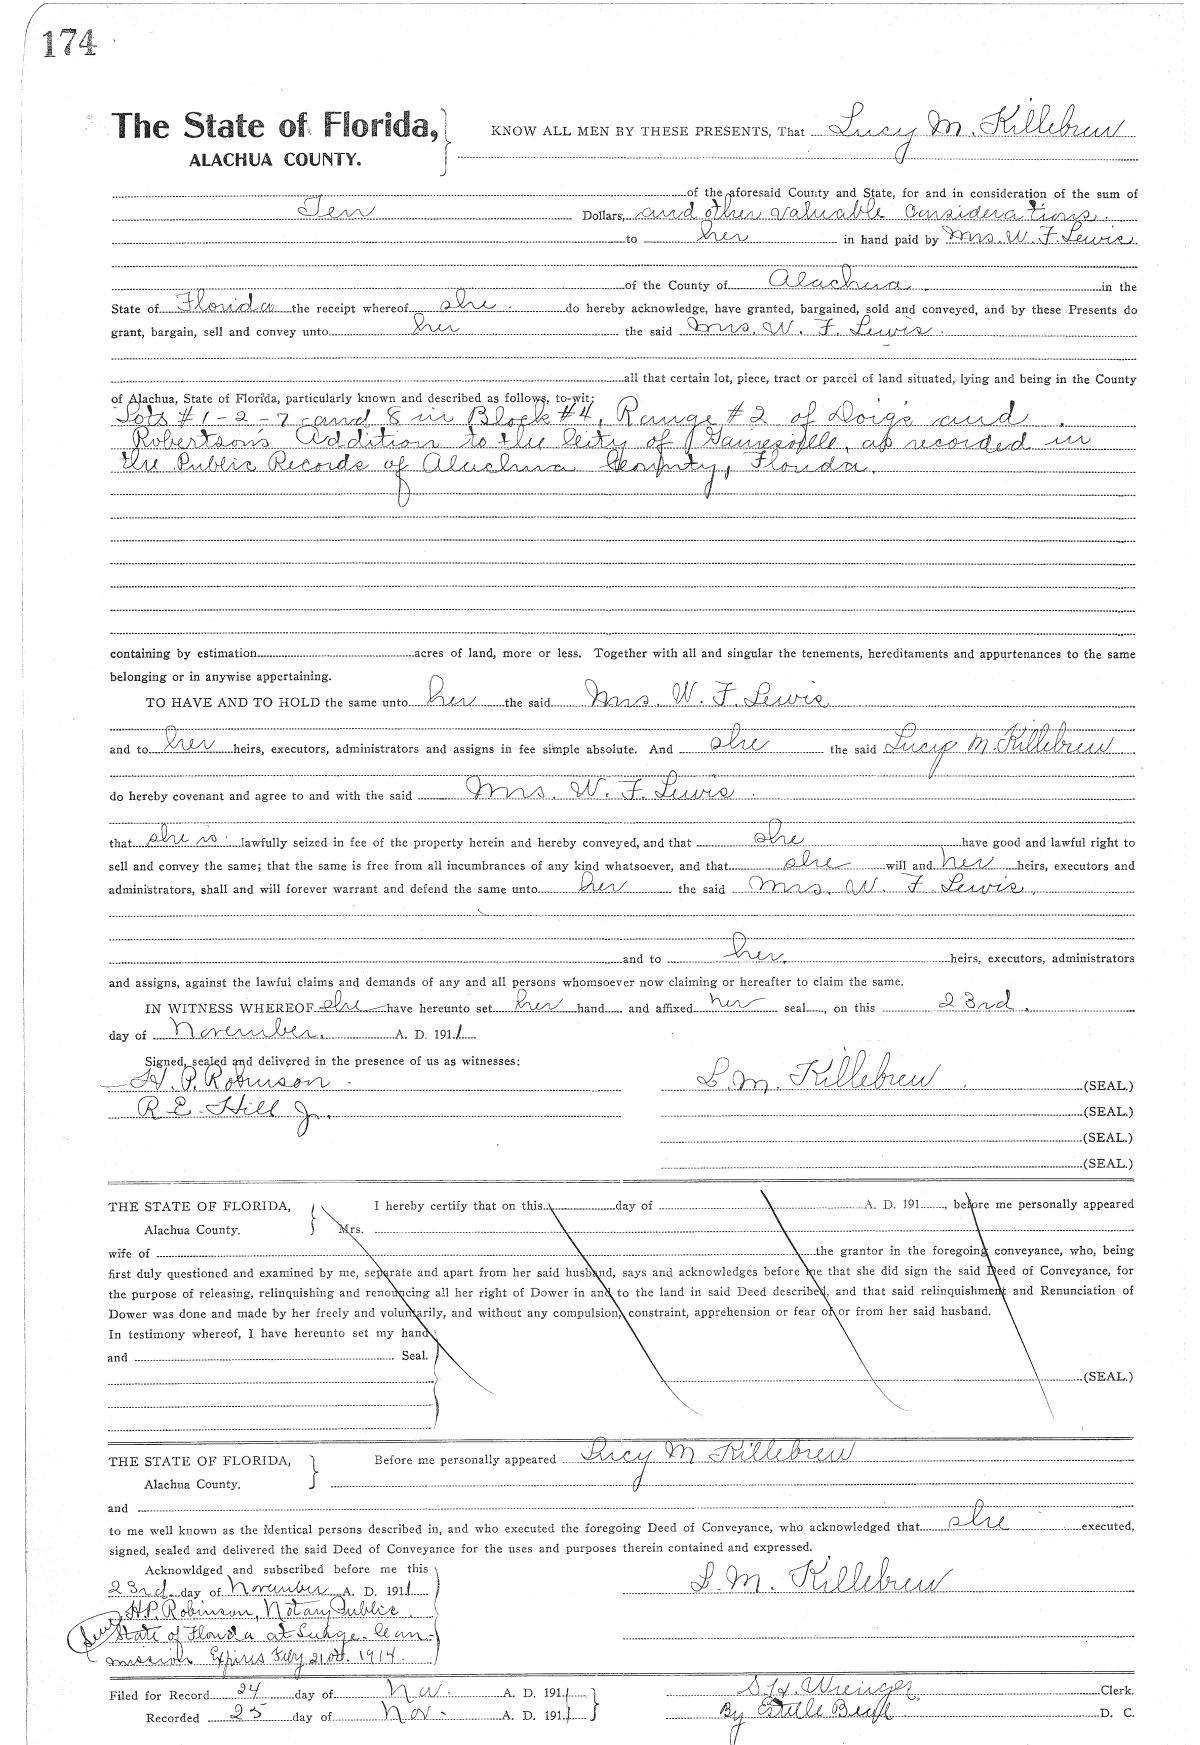 174
The State of Florida, KNOW ALL MEN BY THESE PRESENTS, That Lucy M. Killebrew
ALACHUA COUNTY.
of the aforesaid County and State, for and in consideration of the sum of
Ten Dollars, and other valuable considerations.
to her in hand paid by Mrs. W. F. Lewis
of the County of Alachua. in the
State of Florida the receipt whereof she do hereby acknowledge, have granted, bargained, sold and conveyed, and by these Presents do
grant, bargain, sell and convey unto her the said Mrs. W. F. Lewis.
all that certain lot, piece, tract or parcel of land situated, lying and being in the County
of Alachua, State of Florida, particularly known and described as follows, to-wit:
Lots #1-2-7 and 8 in Block #4, Range #2 of Doig's and
Robertson's Addition to the City of Gainesville, as recorded in
the Public Records of Alachua County, Florida.
containing by estimation acres of land, more or less. Together with all and singular the tenements, hereditaments and appurtenances to the same
belonging or in anywise appertaining.
TO HAVE AND TO HOLD the same unto her the said Mrs. W. F. Lewis
and to her heirs, executors, administrators and assigns in fee simple absolute. And she the said Lucy M. Killebrew
do hereby covenant and agree to and with the said Mrs. W. F. Lewis.
that she is lawfully seized in fee of the property herein and hereby conveyed, and that she have good and lawful right to
sell and convey the same; that the same is free from all incumbrances of any kind whatsoever, and that she will and her heirs, executors and
administrators, shall and will forever warrant and defend the same unto her the said Mrs. W. F. Lewis.
and to her. heirs, executors, administrators
and assigns, against the lawful claims and demands of any and all persons whomsoever now claiming or hereafter to claim the same.
IN WITNESS WHEREOF she have hereunto set her hand and affixed her seal, on this 23rd.
day of November. A. D. 1911
Signed, sealed and delivered in the presence of us as witnesses:
H. P. Robinson L. M. Killebrew (SEAL.)
R E Hill Jr. (SEAL.)
(SEAL.)
(SEAL.)
THE STATE OF FLORIDA, I hereby certify that on this day of A. D. 191, before me personally appeared
Alachua County. Mrs.
wife of the grantor in the foregoing conveyance, who, being
first duly questioned and examined by me, separate and apart from her said husband, says and acknowledges before me that she did sign the said Deed of Conveyance, for
the purpose of releasing, relinquishing and renouncing all her right of Dower in and to the land in said Deed described, and that said relinquishment and Renunciation of
Dower was done and made by her freely and voluntarily, and without any compulsion, constraint, apprehension or fear of or from her said husband.
In testimony whereof, I have hereunto set my hand
and Seal.
(SEAL.)
THE STATE OF FLORIDA, Before me personally appeared Lucy M Killebrew
Alachua County.
and
to me well known as the identical persons described in, and who executed the foregoing Deed of Conveyance, who acknowledged that she executed,
signed, sealed and delivered the said Deed of Conveyance for the uses and purposes therein contained and expressed.
Acknowldged and subscribed before me this
23rd day of November A. D. 1911 L. M. Killebrew
H.P. Robinson, Notary Public
State of Florida at Large. Com-
mission Expires Feby 21st. 1914.
Filed for Record 24 day of Nov. A. D. 1911 S. H. Wienges, Clerk.
Recorded 25 day of Nov. A. D. 1911 By Estelle D. C.